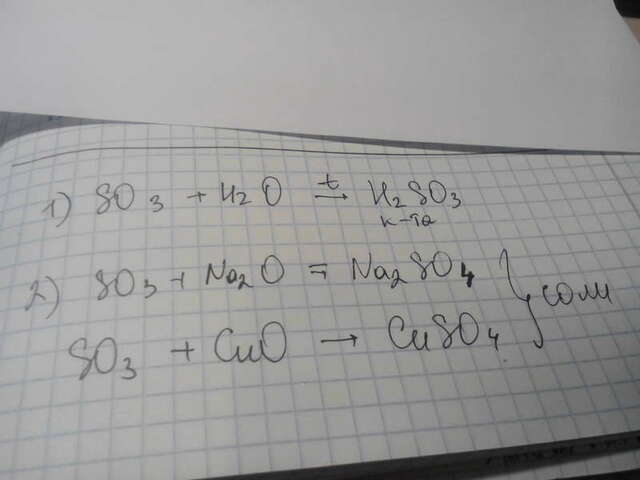 1) SO₃ + H₂O →ᵗ H₂SO₃
к-та
2) SO₃ + Na₂O = Na₂SO₄
SO₃ + CuO → CuSO₄ } соли